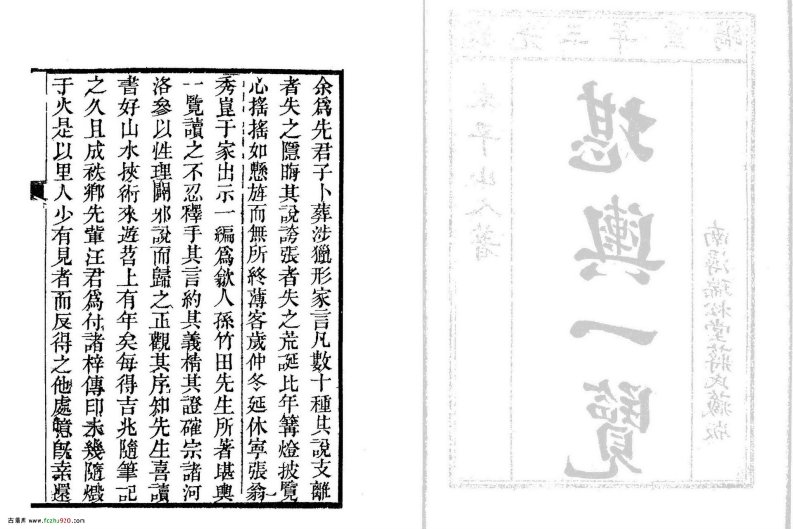 堪輿一覽
南潯瑞松堂蔣氏藏版
余爲先君子卜葬涉獵形家言凡數十種其說支離
者失之隱晦其說誇張者失之荒誕比年篝燈披覽
心搖搖如懸旌而無所終薄客歲仲冬延休寧張翁
秀崑于家出示一編爲歙人孫竹田先生所著堪輿
一覽讀之不忍釋手其言約其義精其證確宗諸河
洛參以性理闢邪說而歸之正觀其序知先生喜讀
書好山水挾術來遊苕上有年矣每得吉兆隨筆記
之久且成袟鄉先輩汪君爲付諸梓傳印未幾隨燬
于火是以里人少有見者而反得之他處噫旣亲還
古籍库 www.fczhu920.com